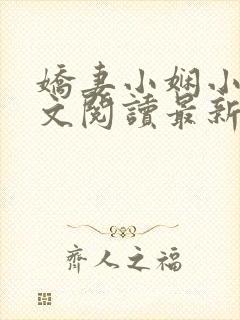 嬌妻小娴小
文閱讀最新
齊人之福